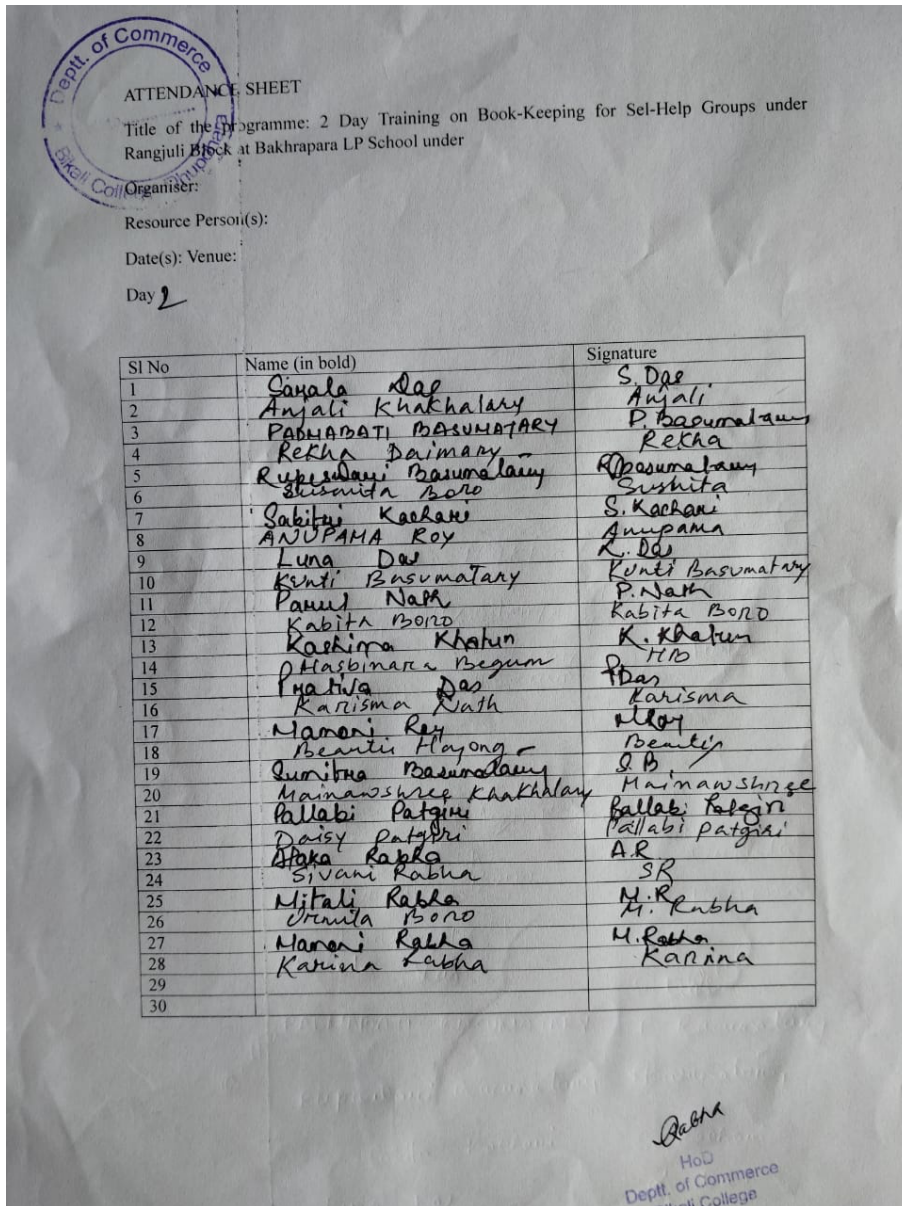 Deptt. of Commerce
Bikali College, Dhupdhara
ATTENDANCE SHEET
Title of the programme: 2 Day Training on Book-Keeping for Sel-Help Groups under
Rangjuli Block at Bakhrapara LP School under
Organiser:
Resource Person(s):
Date(s): Venue:
Day 2
Sl No Name (in bold) Signature
1 Sarala Das S. Das
2 Anjali Khakhalary Anjali
3 PADMABATI BASUMATARY P. Basumatary
4 Rekha Daimary Rekha
5 Rupeswari Basumatary RBasumatary
6 Susmita Boro Sushita
7 Sabitri Kachari S. Kachari
8 ANUPAMA ROY Anupama
9 Luna Das L. Das
10 Kunti Basumatary Kunti Basumatary
11 Parul Nath P. Nath
12 Kabita Boro Kabita Boro
13 Kashima Khatun K. Khatun
14 Hasbinara Begum HB
15 Prativa Das PDas
16 Karisma Nath Karisma
17 Mamoni Roy MRoy
18 Beauti Hajong Beauti
19 Sumitra Basumatary S.B
20 Mainawshree Khakhalary Mainawshree
21 Pallabi Patgiri Pallabi Patgiri
22 Daisy Patgiri Pallabi Patgiri
23 Rabha A.R
24 Sivani Rabha SR
25 Mitali Rabha M.R
26 Urmila Boro M. Rabha
27 Mamoni Rabha M. Rabha
28 Karina Rabha Karina
29
30
Rabha
HoD
Deptt. of Commerce
College